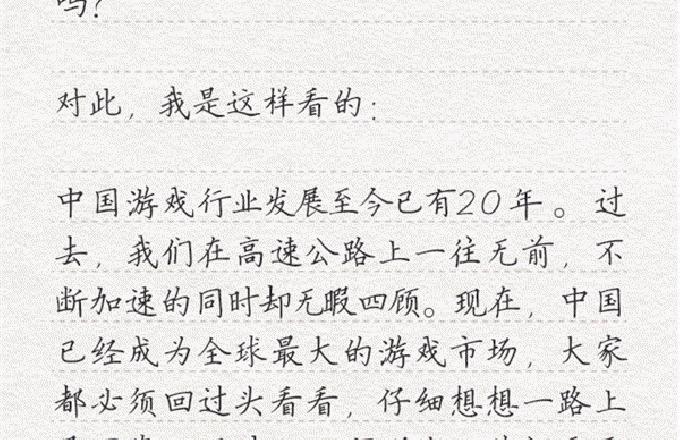 吗？
对此，我是这样看的：
中国游戏行业发展至今已有20年。过
去，我们在高速公路上一往无前，不
断加速的同时却无暇四顾。现在，中国
已经成为全球最大的游戏市场，大家
都必须回过头看看，仔细想想一路上